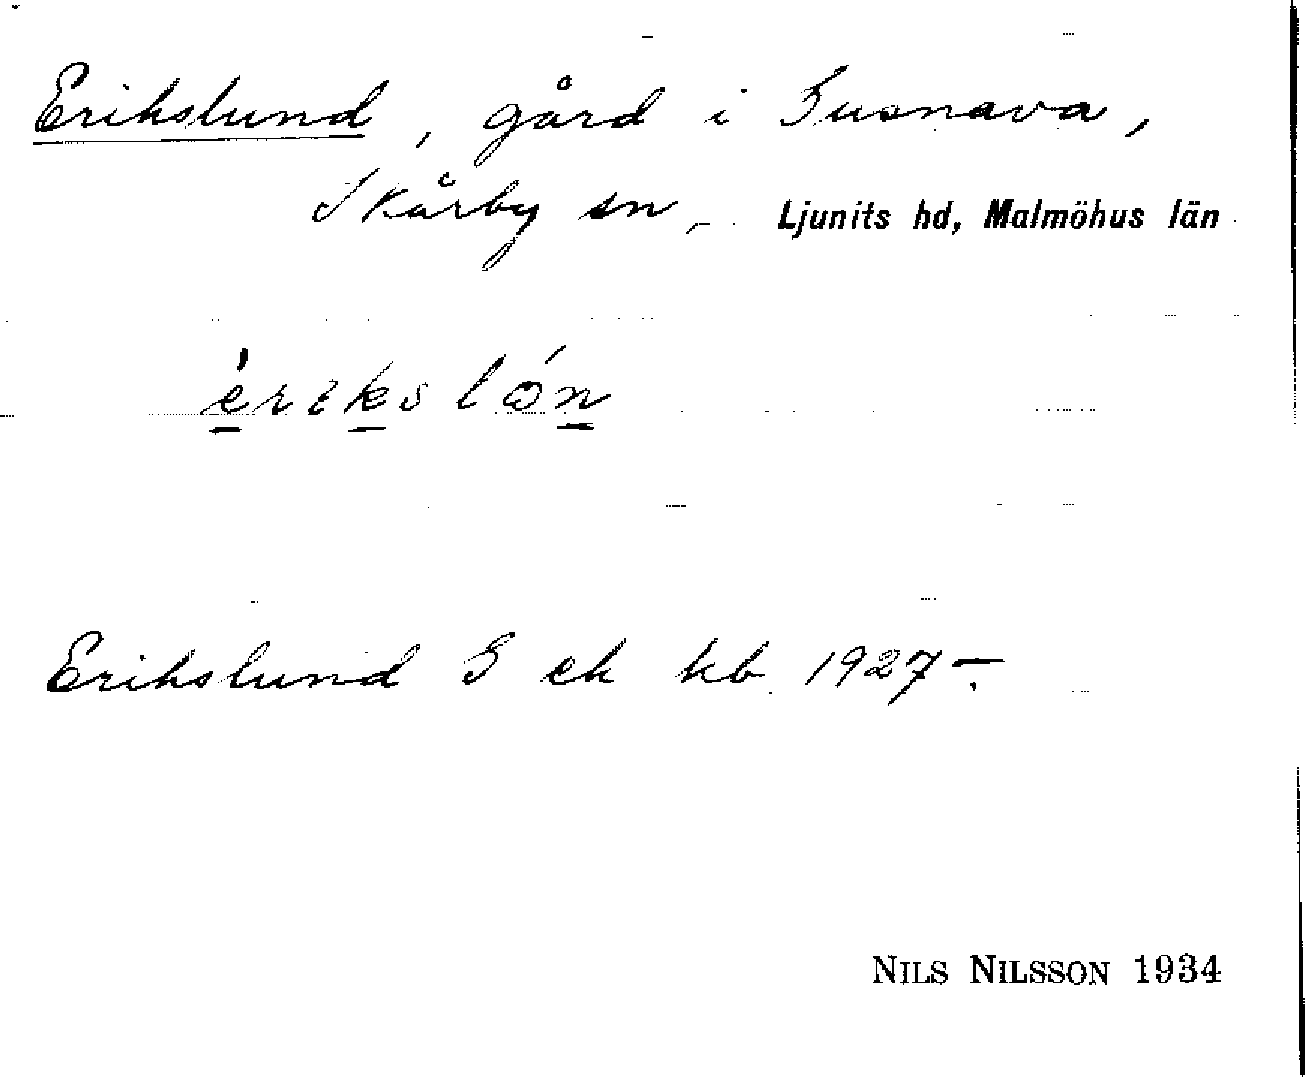 Erikslund, gård i Gusnava,
Skårby sn, Ljunits hd, Malmöhus län
érikslón
Erikslund G ek kb 1927–.
NILS NILSSON 1934